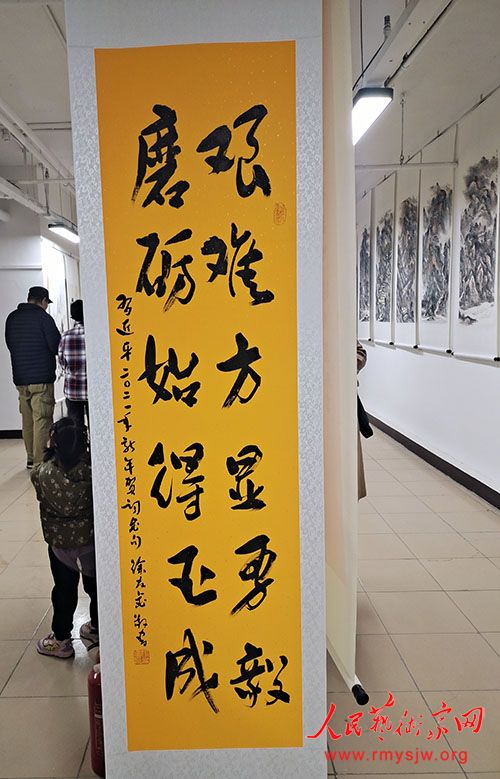 艰难方显勇毅
磨砺始得玉成
习近平二〇二一年新年贺词名句 徐
人民艺术家网
www.rmysjw.org